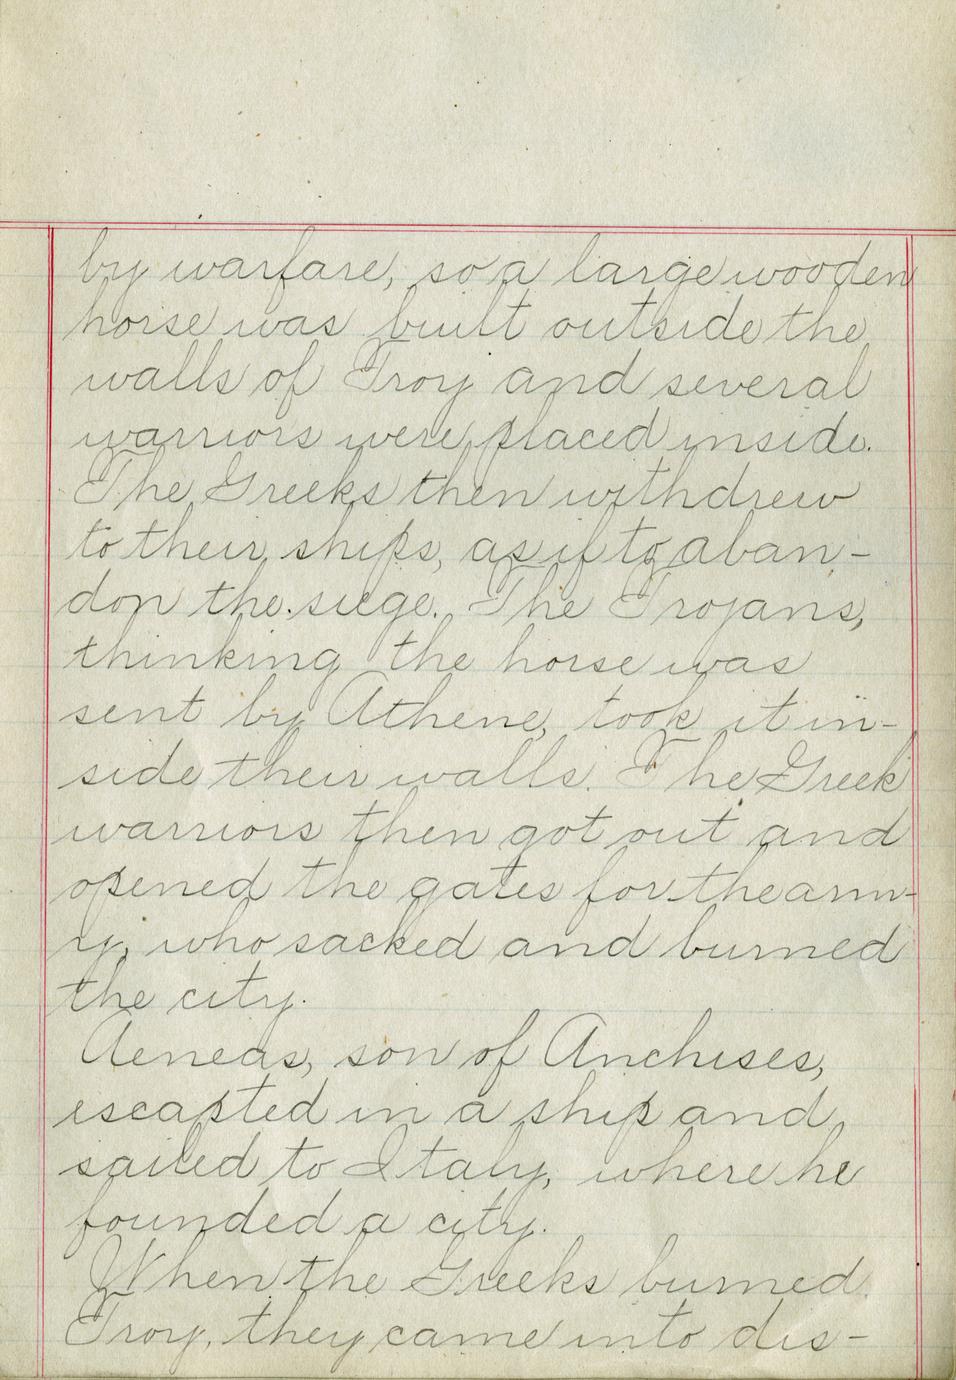 by warfare, so a large wooden
horse was built outside the
walls of Troy and several
warriors were placed inside.
The Greeks then withdrew
to their ships, as if to aban-
don the siege. The Trojans,
thinking the horse was
sent by Athene, took it in-
side their walls. The Greek
warriors then got out and
opened the gates for the arm-
y, who sacked and burned
the city.
Aeneas, son of Anchises,
escapted in a ship and
sailed to Italy, where he
founded a city.
When the Greeks burned
Troy, they came into dis-